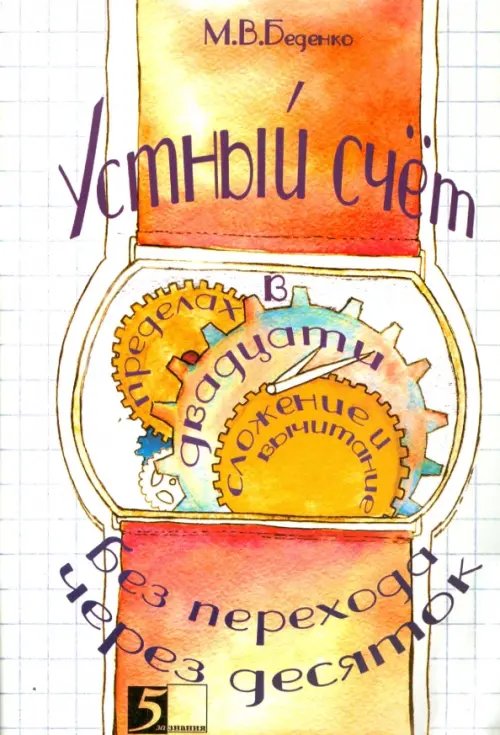 М.В.Беденко
Устный счёт
в
пределах
двадцати
сложение и
вычитание
без перехода
через десяток
5
за знания